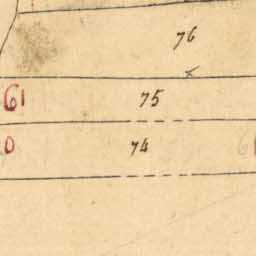 76
61 75
0 74 6